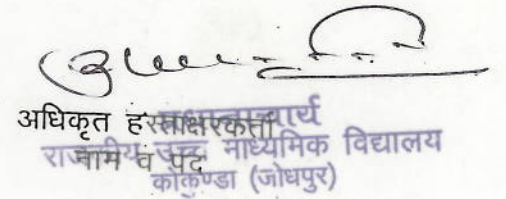 अधिकृत हस्ताक्षरकर्ता
प्रधानाचार्य
नाम व पद
राजकीय उच्च माध्यमिक विद्यालय
कोकुण्डा (जोधपुर)